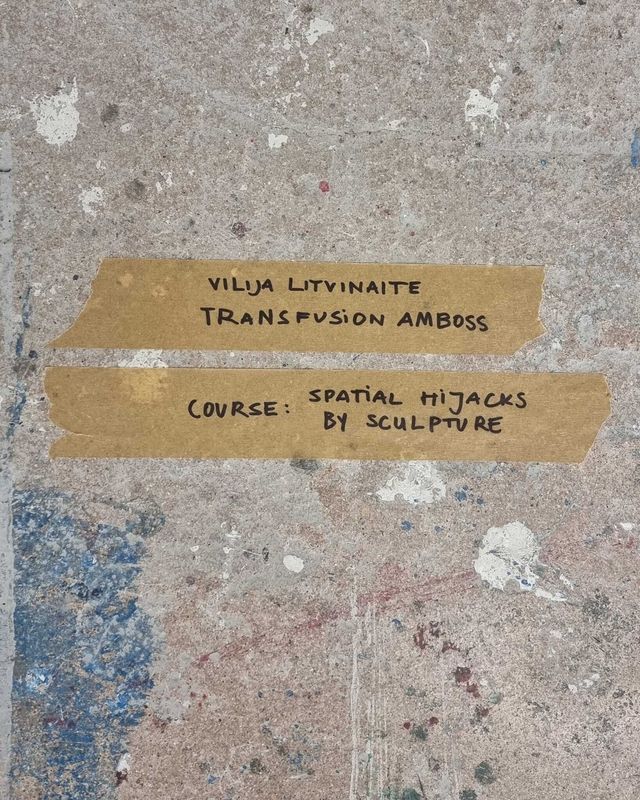 VILIJA LITVINAITE
TRANSFUSION AMBOSS
COURSE: SPATIAL HIJACKS
BY SCULPTURE